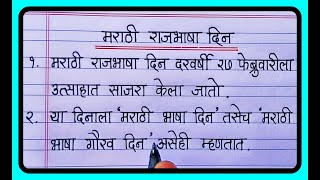 मराठी राजभाषा दिन
१. मराठी राजभाषा दिन दरवर्षी २७ फेब्रुवारीला
उत्साहात साजरा केला जातो.
२. या दिनाला 'मराठी भाषा दिन' तसेच 'मराठी
भाषा गौरव दिन' असेही म्हणतात.